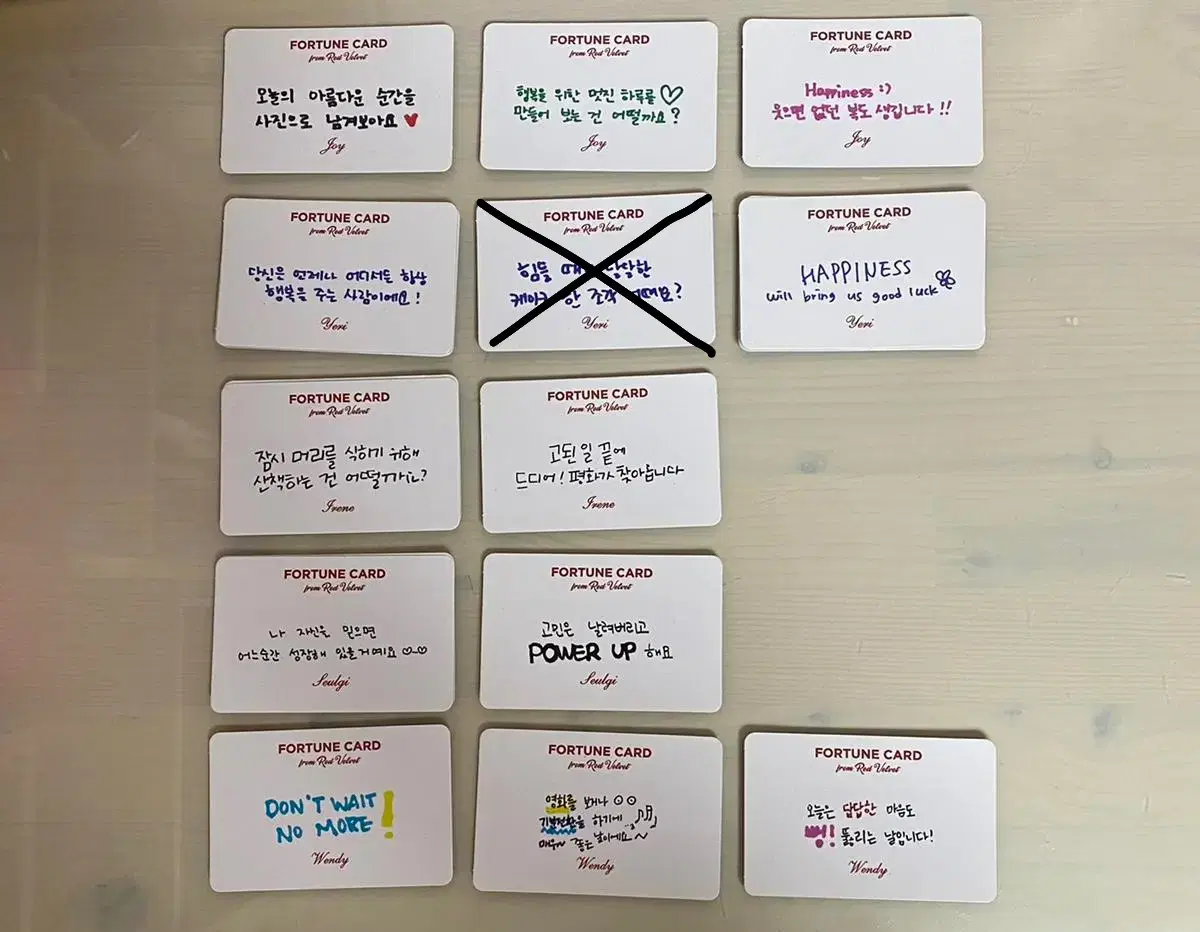 FORTUNE CARD
from Red Velvet
오늘의 아름다운 순간을
사진으로 남겨보아요
Joy
FORTUNE CARD
from Red Velvet
행복을 위한 멋진 하루를
만들어 보는 건 어떨까요?
Joy
FORTUNE CARD
from Red Velvet
Happiness :)
웃으면 없던 복도 생깁니다!!
Joy
FORTUNE CARD
from Red Velvet
당신은 언제나 어디서든 항상
행복을 주는 사람이에요!
Yeri
FORTUNE CARD
from Red Velvet
힘들 때
한 조각
Yeri
FORTUNE CARD
from Red Velvet
HAPPINESS
will bring us good luck
Yeri
FORTUNE CARD
from Red Velvet
잠시 머리를 식히기 위해
산책하는 건 어떨까요?
Irene
FORTUNE CARD
from Red Velvet
고된 일 끝에
드디어! 평화가 찾아옵니다
Irene
FORTUNE CARD
from Red Velvet
나 자신을 믿으면
어느순간 성장해 있을거예요
Seulgi
FORTUNE CARD
from Red Velvet
고민은 날려버리고
POWER UP 해요
Seulgi
FORTUNE CARD
from Red Velvet
DON'T WAIT
NO MORE!
Wendy
FORTUNE CARD
from Red Velvet
영화를 보거나
기분전환을 하기에
매우~ 좋은 날이에요~
Wendy
FORTUNE CARD
from Red Velvet
오늘은 답답한 마음도
뻥! 뚫리는 날입니다!
Wendy